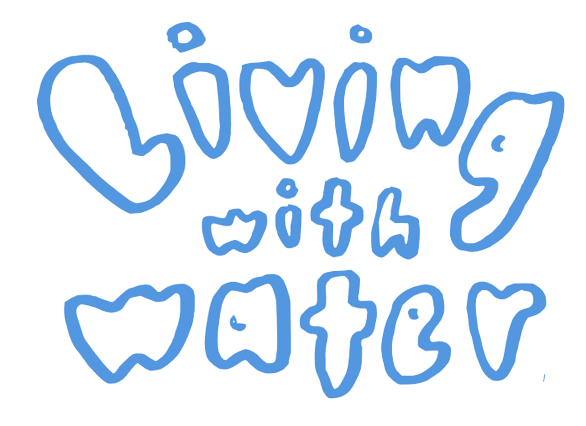 Living
with
water